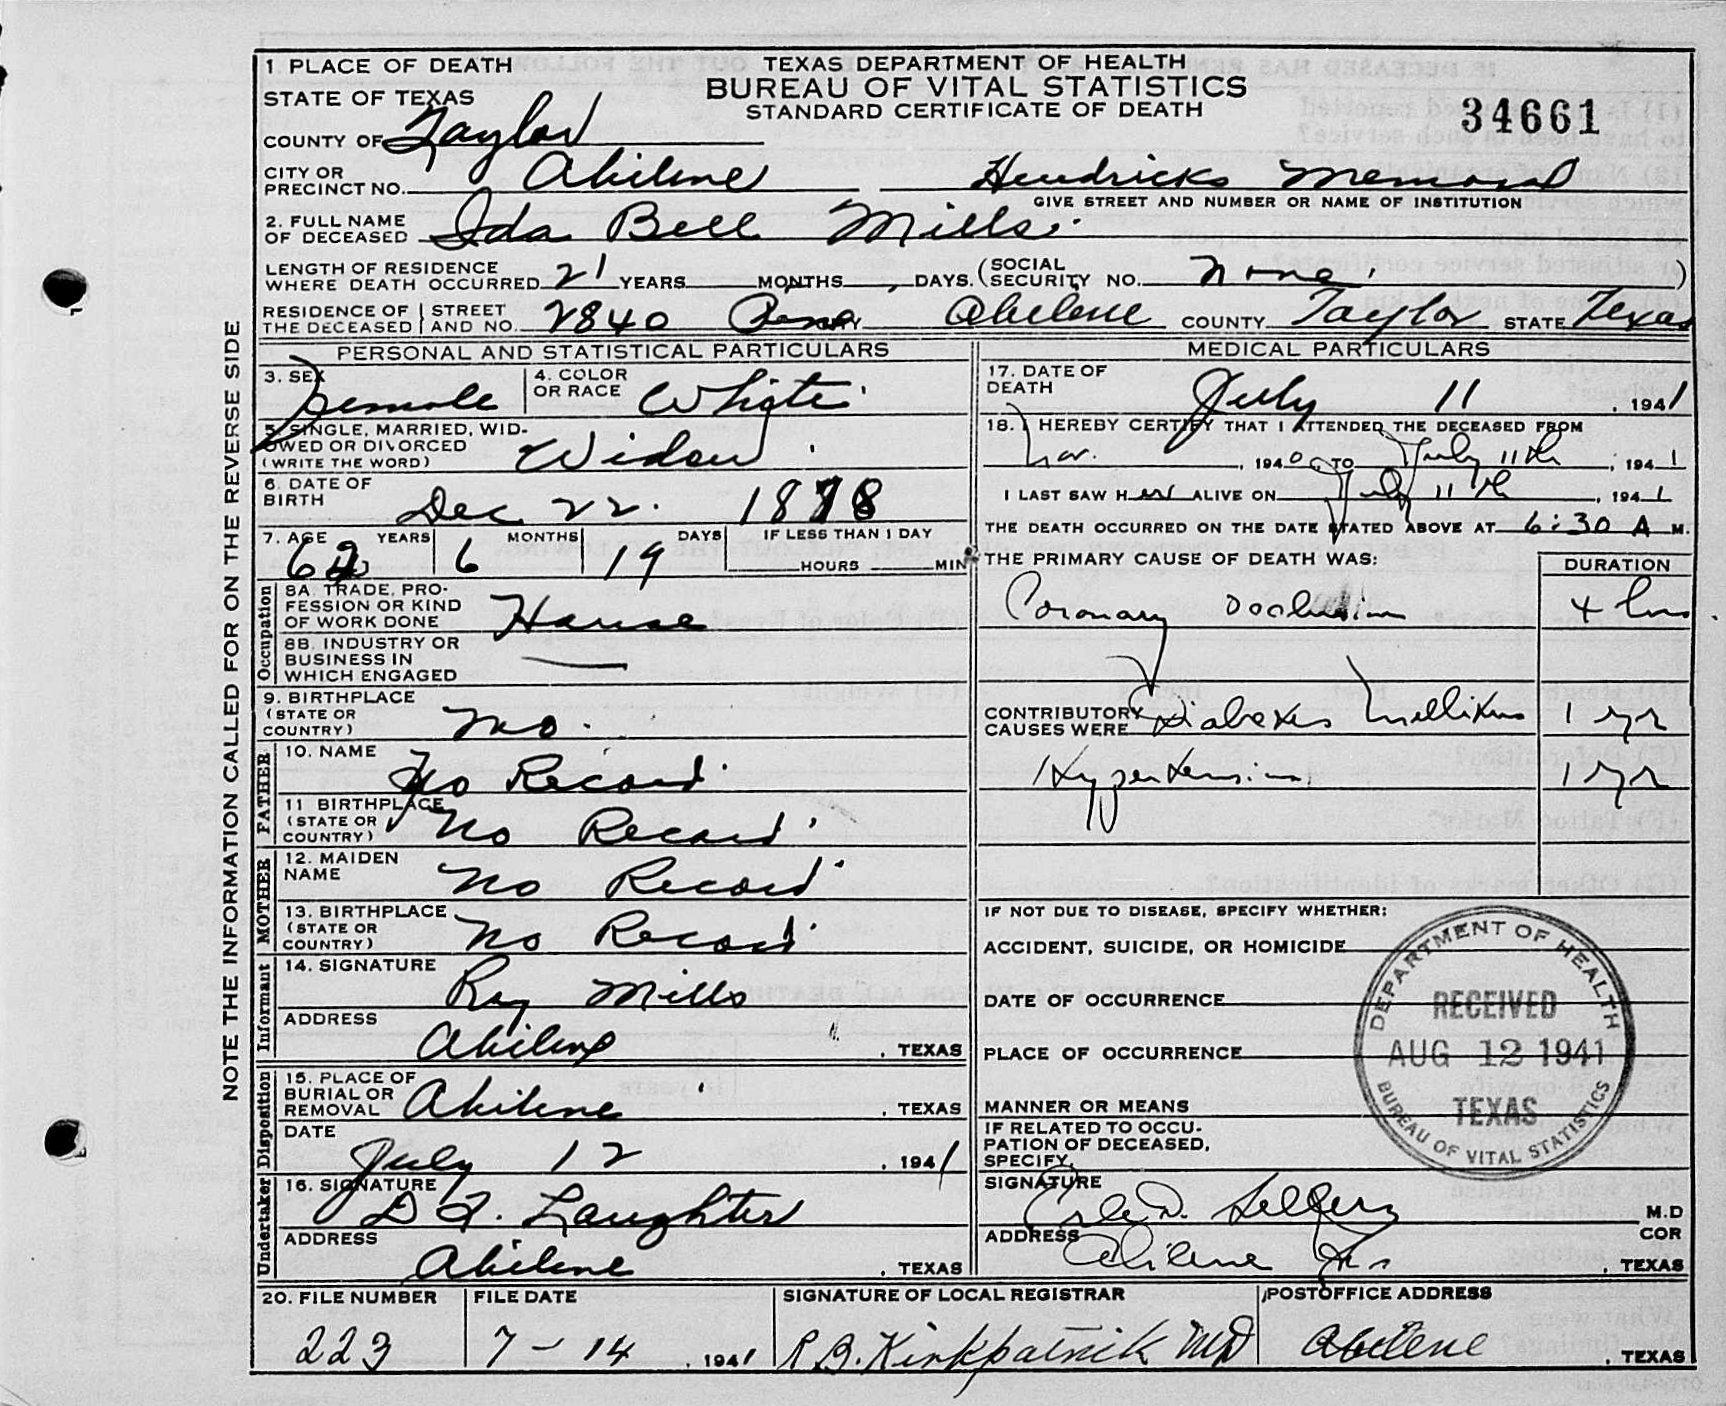 1. PLACE OF DEATH
TEXAS DEPARTMENT OF HEALTH
BUREAU OF VITAL STATISTICS
STANDARD CERTIFICATE OF DEATH
34661
STATE OF TEXAS
COUNTY OF Taylor
CITY OR PRECINCT NO. Abilene Hendricks Memorial
GIVE STREET AND NUMBER OR NAME OF INSTITUTION
2. FULL NAME OF DECEASED Ida Bell Mills
LENGTH OF RESIDENCE WHERE DEATH OCCURRED 21 YEARS MONTHS DAYS. (SOCIAL SECURITY NO. None)
RESIDENCE OF THE DECEASED STREET AND NO. 2840 Pine Abilene COUNTY Taylor STATE Texas
PERSONAL AND STATISTICAL PARTICULARS
3. SEX Female
4. COLOR OR RACE White
5. SINGLE, MARRIED, WIDOWED OR DIVORCED (WRITE THE WORD) Widow
6. DATE OF BIRTH Dec 22. 1878
7. AGE 62 YEARS 6 MONTHS 19 DAYS IF LESS THAN 1 DAY HOURS MIN
Occupation
8A. TRADE, PROFESSION OR KIND OF WORK DONE House
8B. INDUSTRY OR BUSINESS IN WHICH ENGAGED
9. BIRTHPLACE (STATE OR COUNTRY) Mo.
FATHER
10. NAME No Record
11 BIRTHPLACE (STATE OR COUNTRY) No Record
MOTHER
12. MAIDEN NAME No Record
13. BIRTHPLACE (STATE OR COUNTRY) No Record
Informant
14. SIGNATURE Ray Mills
ADDRESS Abilene, TEXAS
Disposition
15. PLACE OF BURIAL OR REMOVAL Abilene, TEXAS
DATE July 12, 1941
Undertaker
16. SIGNATURE Laughter
ADDRESS Abilene, TEXAS
MEDICAL PARTICULARS
17. DATE OF DEATH July 11, 1941
18. I HEREBY CERTIFY THAT I ATTENDED THE DECEASED FROM
Nov., 1940 TO July 11th, 1941
I LAST SAW HER ALIVE ON July 11th, 1941
THE DEATH OCCURRED ON THE DATE STATED ABOVE AT 6:30 A M.
THE PRIMARY CAUSE OF DEATH WAS: DURATION
Coronary occlusion 4 hrs
CONTRIBUTORY CAUSES WERE Diabetes Mellitus 1 yr
Hypertension 1 yr
IF NOT DUE TO DISEASE, SPECIFY WHETHER:
ACCIDENT, SUICIDE, OR HOMICIDE
DATE OF OCCURRENCE
PLACE OF OCCURRENCE
MANNER OR MEANS
IF RELATED TO OCCUPATION OF DECEASED, SPECIFY
SIGNATURE Erle D. Sellers M.D
COR
ADDRESS Abilene Tex, TEXAS
DEPARTMENT OF HEALTH
RECEIVED
AUG 12 1941
TEXAS
BUREAU OF VITAL STATISTICS
20. FILE NUMBER 223
FILE DATE 7-14, 1941
SIGNATURE OF LOCAL REGISTRAR R B. Kirkpatrick MD
POSTOFFICE ADDRESS Abilene, TEXAS
NOTE THE INFORMATION CALLED FOR ON THE REVERSE SIDE